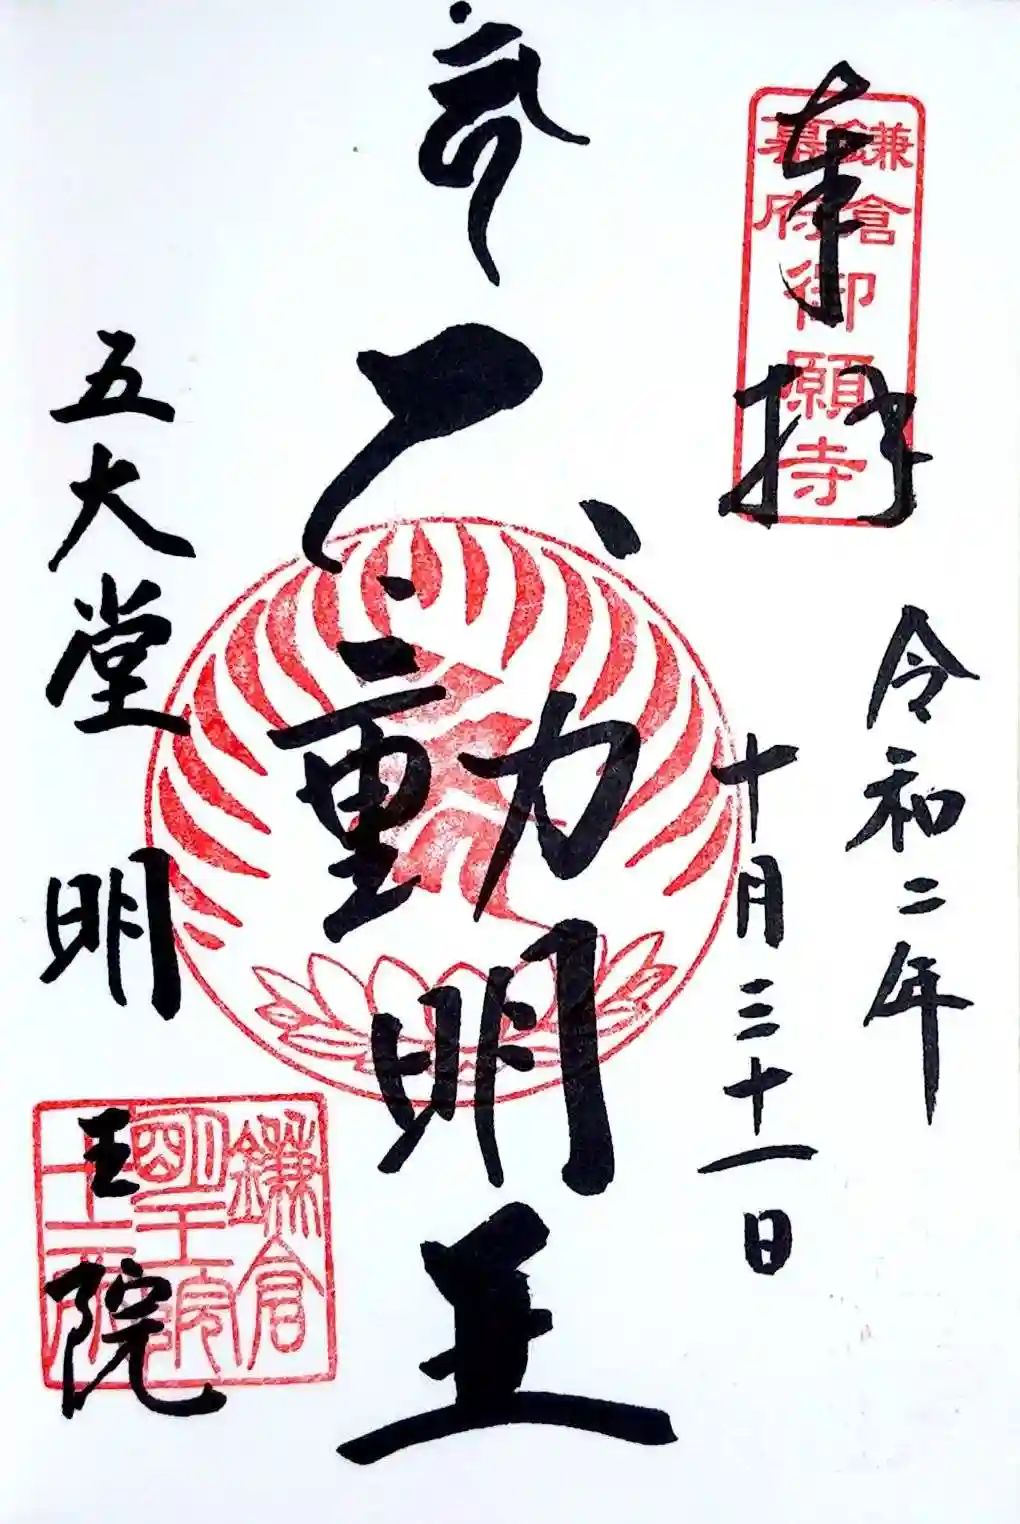 奉拝
鎌倉
幕府
御願寺
令和二年
十月三十一日
不動明王
五大堂明王院
鎌倉
明王院